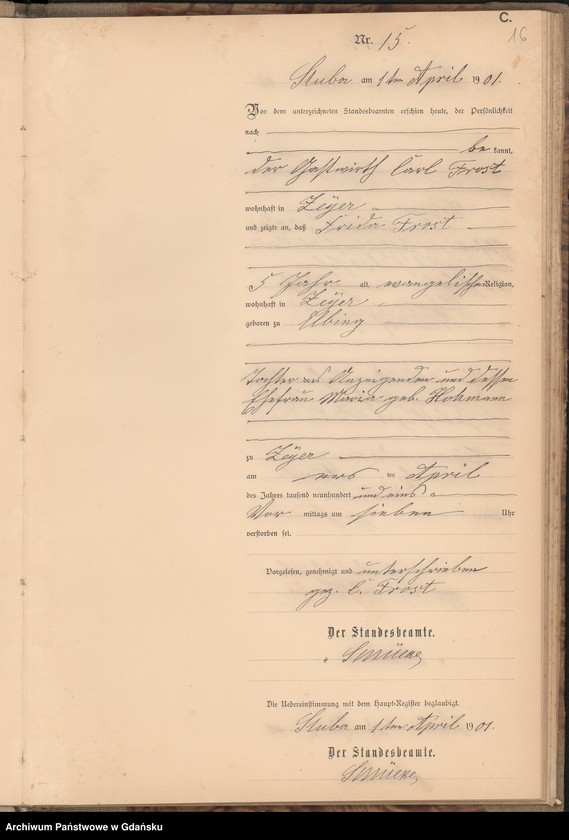 C.
16
Nr. 15.
Stuba am 1ten April 1901.
Vor dem unterzeichneten Standesbeamten erschien heute, der Persönlichkeit
nach
be kannt,
der Gastwirth Carl Frost
wohnhaft in Zeyer
und zeigte an, daß Frida Frost
5 Jahr alt, evangelischer Religion,
wohnhaft in Zeyer
geboren zu Elbing
Tochter des Anzeigenden und dessen
Ehefrau Maria geb. Hohmann
zu Zeyer
am ersten April
des Jahres tausend neunhundert und eins
Vor mittags um sieben Uhr
verstorben sei.
Vorgelesen, genehmigt und unterschrieben
gez. C. Frost
Der Standesbeamte.
Die Uebereinstimmung mit dem Haupt-Register beglaubigt.
Stuba am 1ten April 1901.
Der Standesbeamte.
Archiwum Państwowe w Gdańsku